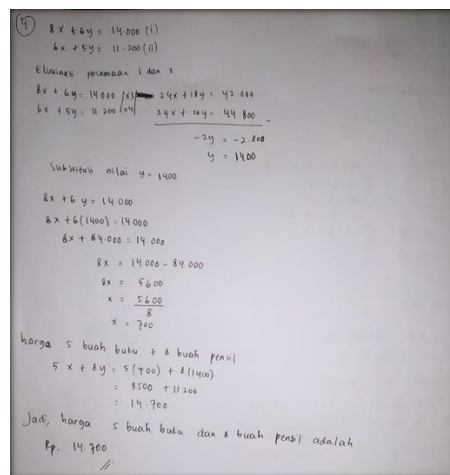 4
8x + 6y = 14.000 (i)
6x + 5y = 11.200 (ii)
Eliminasi persamaan 1 dan 2
8x + 6y = 14.000 |x3| 24x + 18y = 42.000
6x + 5y = 11.200 |x4| 24x + 20y = 44.800 -
-2y = -2.800
y = 1400
Substitusi nilai y = 1400
8x + 6y = 14000
8x + 6(1400) = 14000
8x + 84.000 = 14.000
8x = 14000 - 84.000
8x = 5600
x = 5600
8
x = 700
harga 5 buah buku + 8 buah pensil
5x + 8y = 5(700) + 8(1400)
= 3500 + 11200
= 14.700
Jadi, harga 5 buah buku dan 8 buah pensil adalah
Rp. 14.700